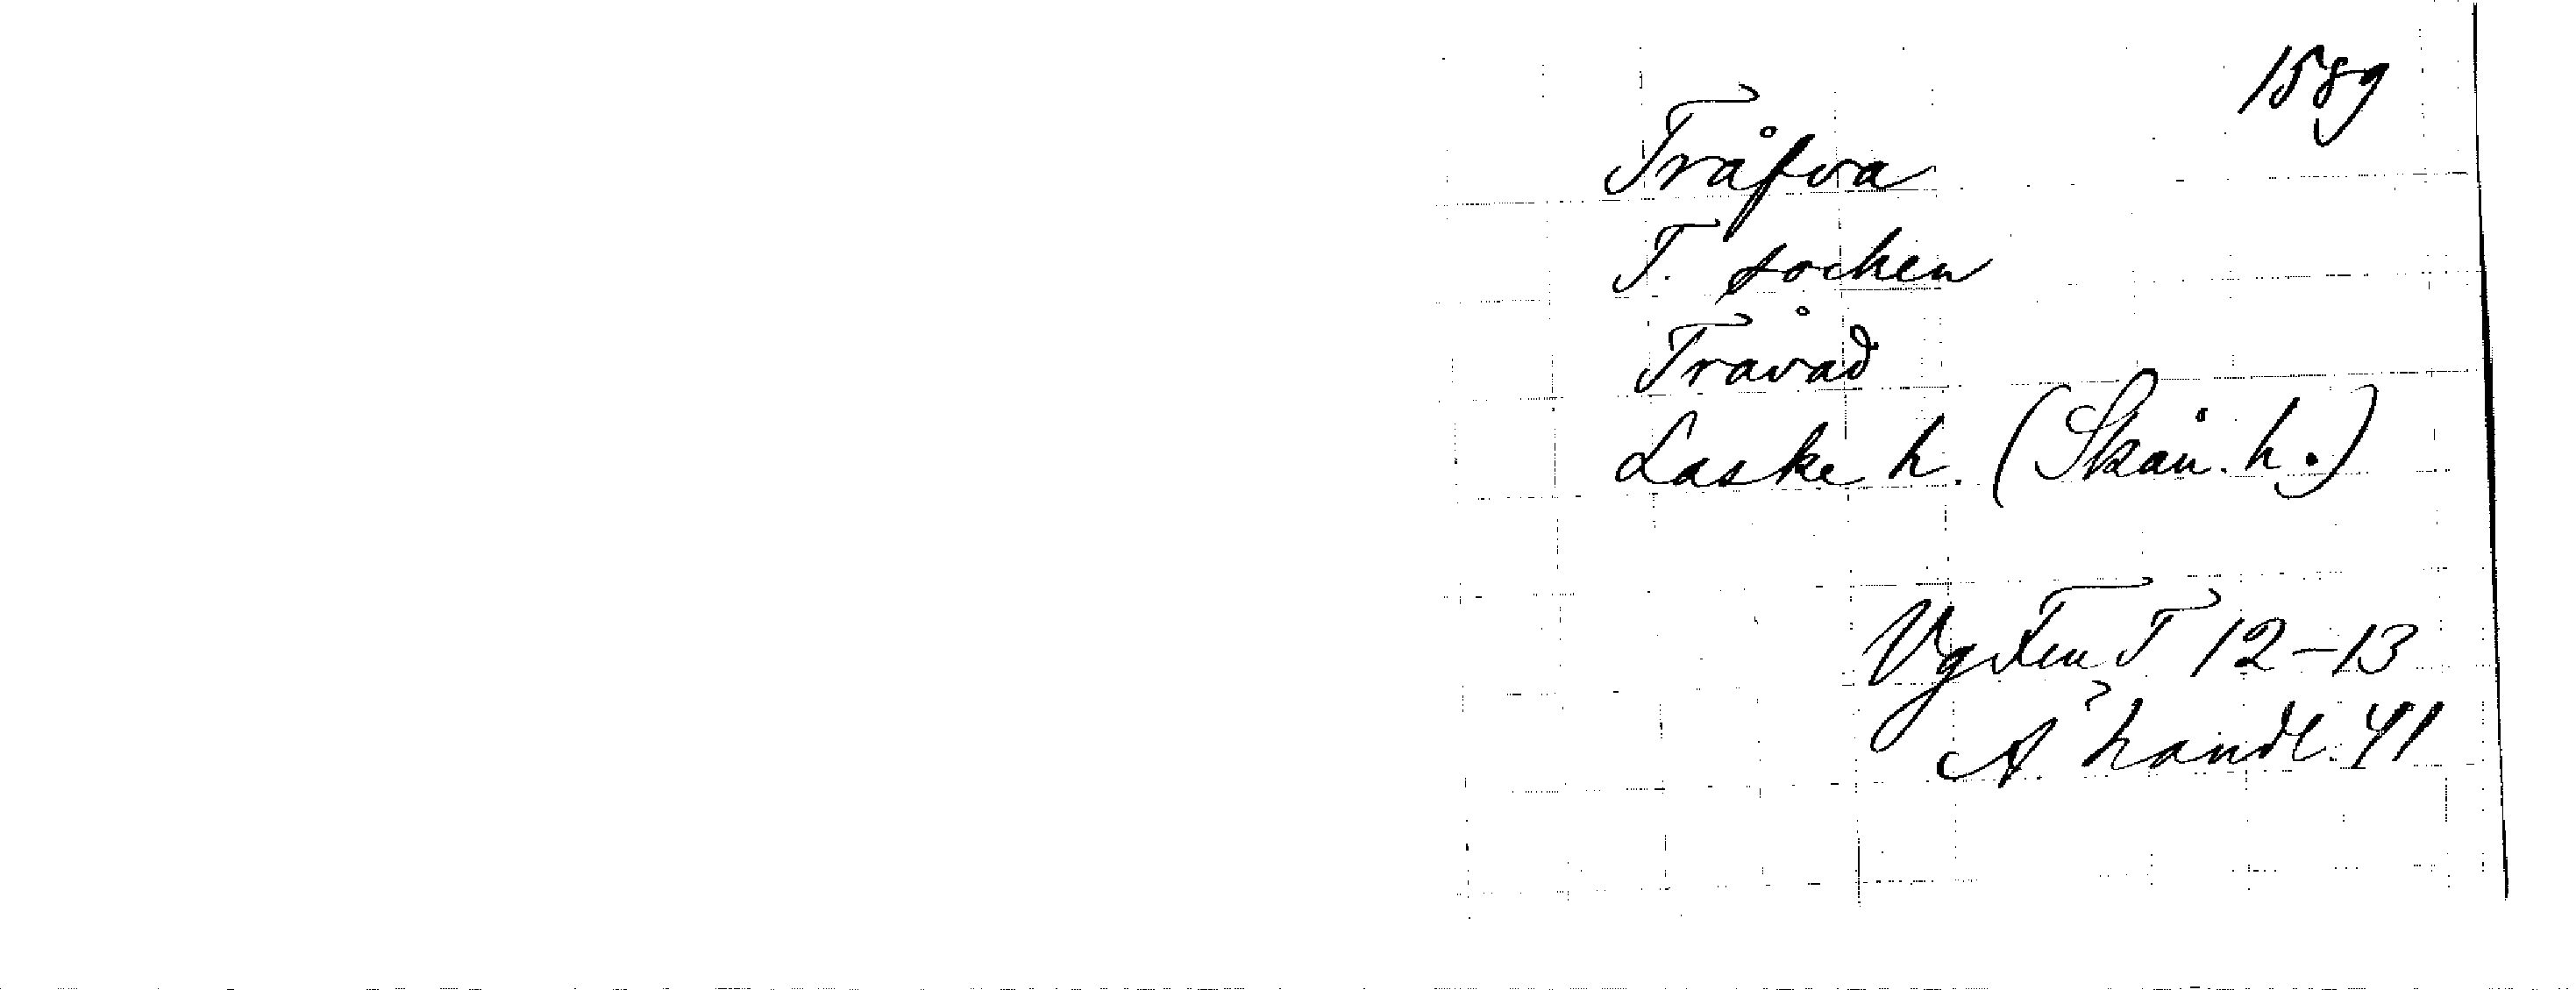 1589
Tråfva
T. socken
Tråvad
Laske h. (Skån. h.)
Vg Fru T 12-13
A handl. 41